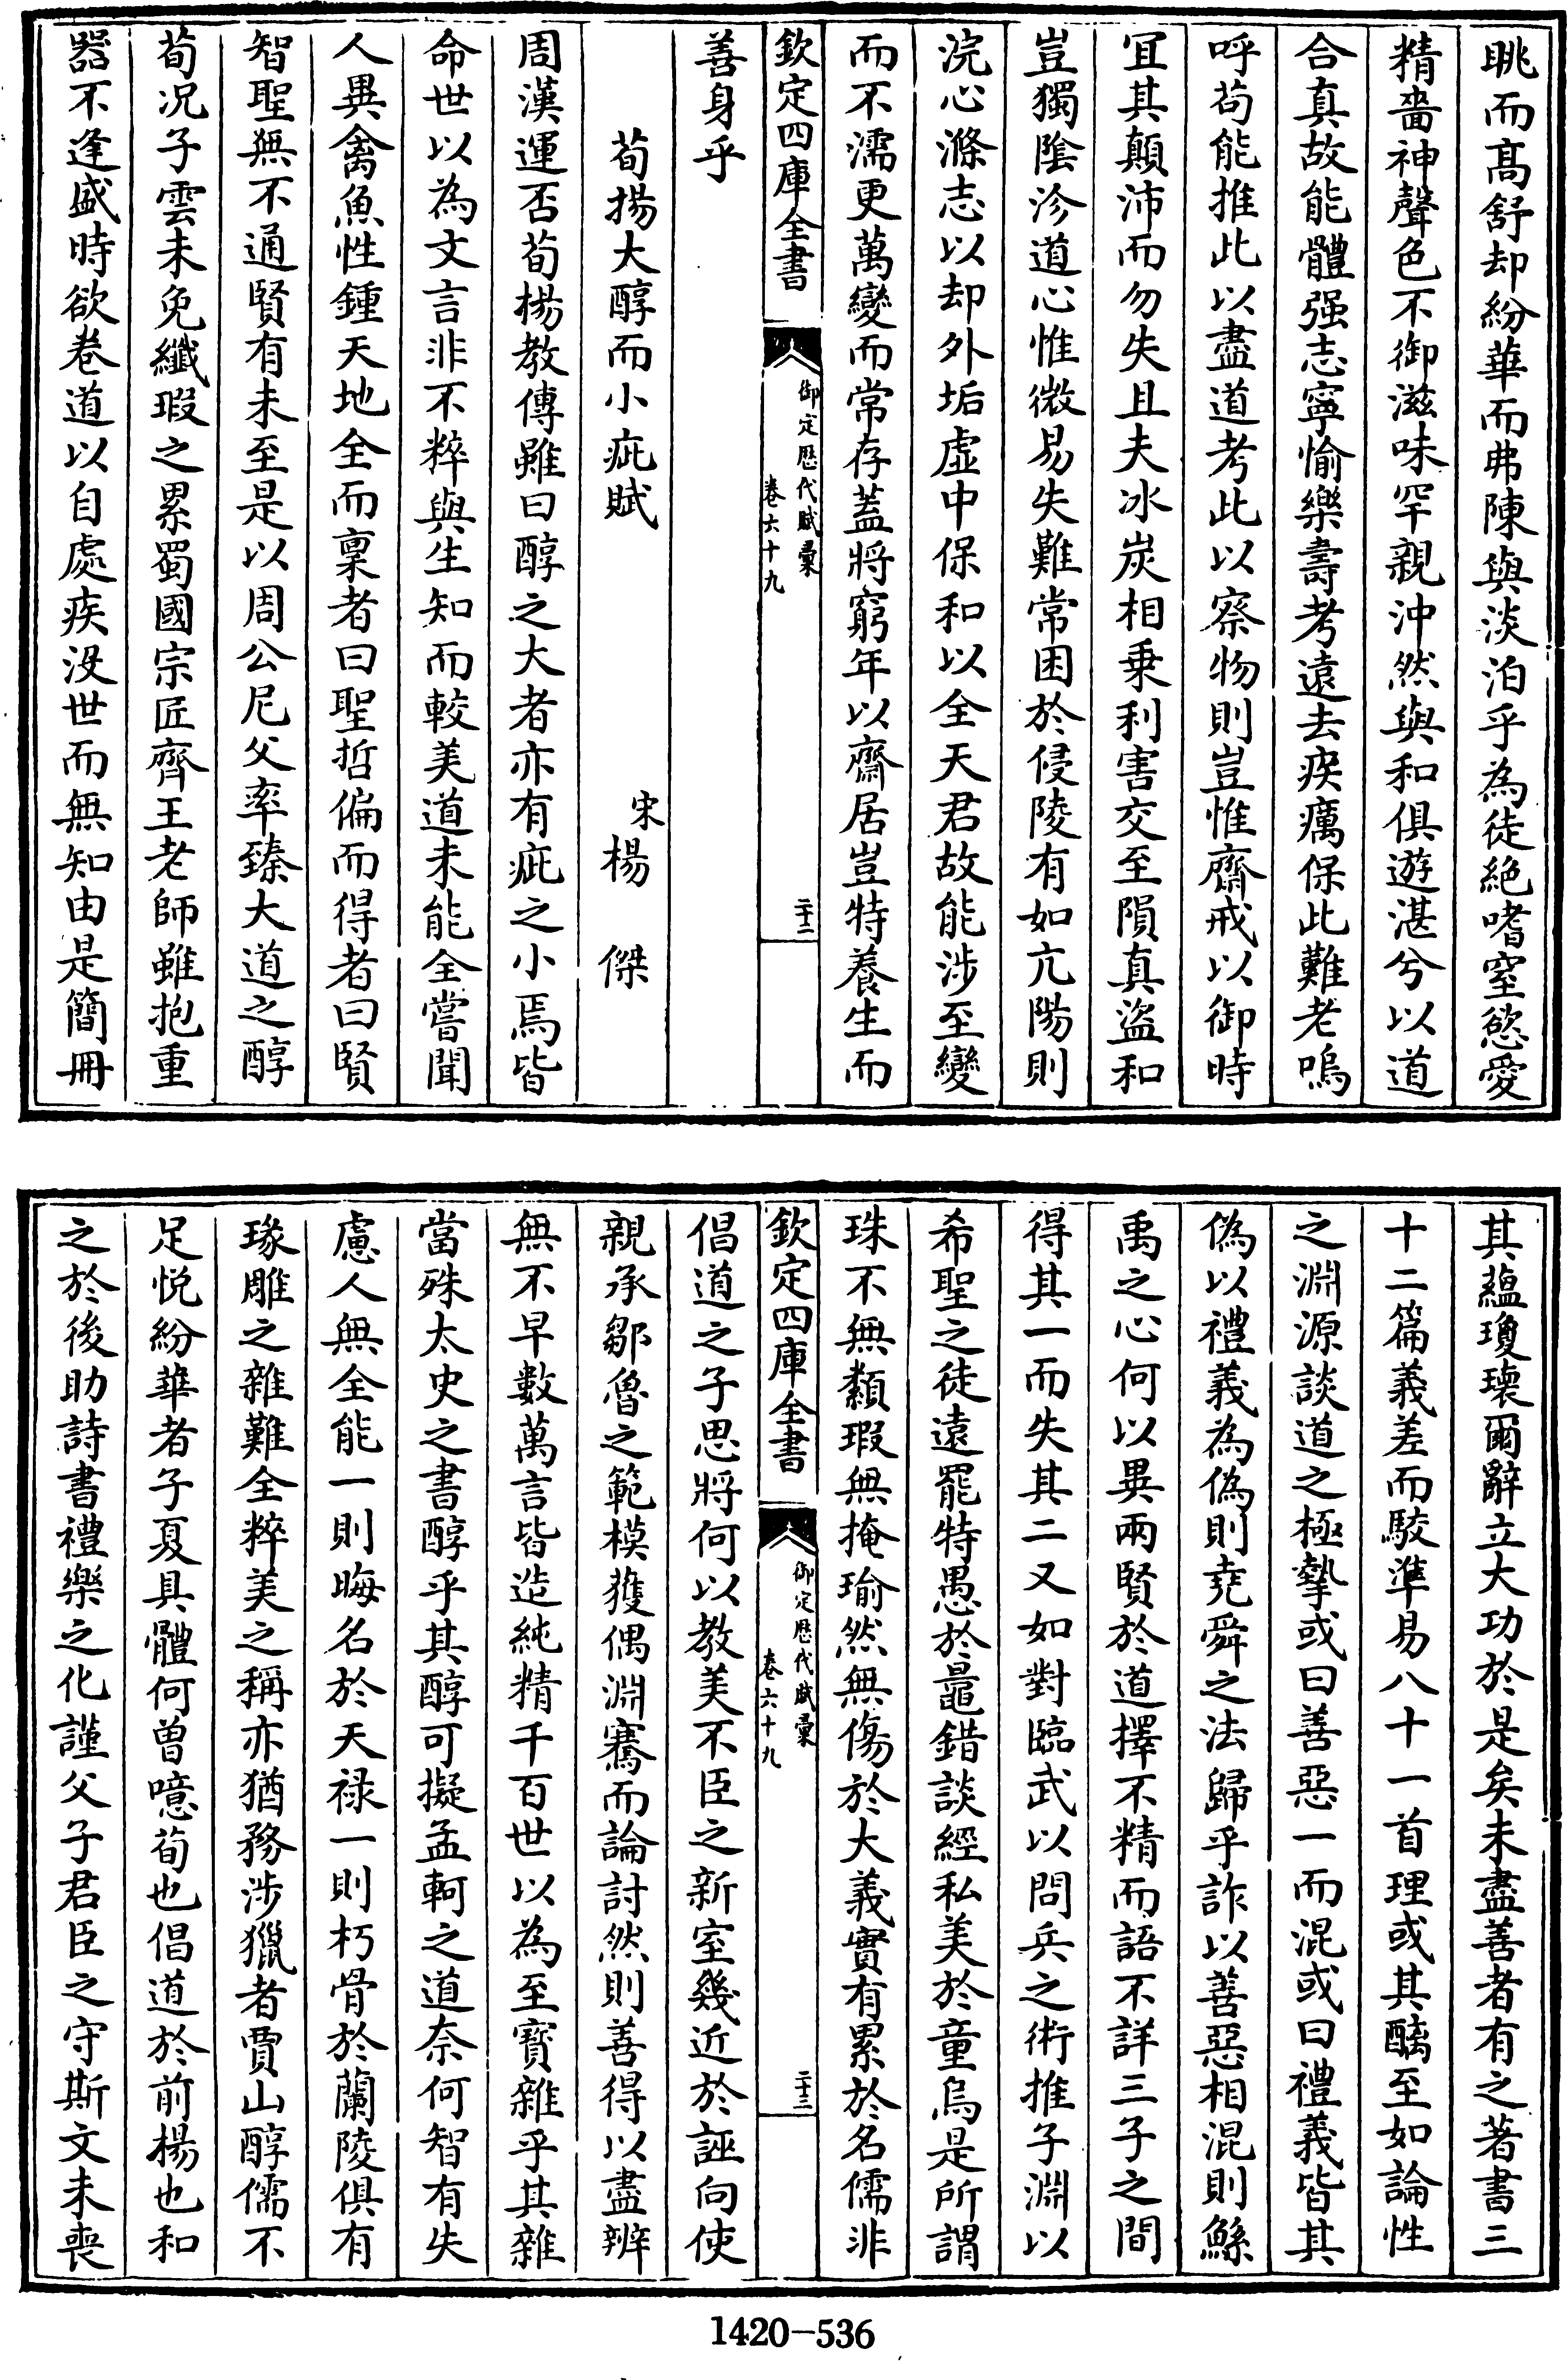 眺而髙舒却紛華而弗陳與淡泊乎為徒絶嗜窒慾愛
精嗇神聲色不御滋味罕親沖然與和俱遊湛兮以道
合真故能體强志寧愉樂壽考逺去疾癘保此難老嗚
呼茍能推此以盡道考此以察物則豈惟齋戒以御時
宜其顛沛而勿失且夫冰炭相乗利害交至隕真盜和
豈獨隂沴道心惟微易失難常困於侵陵有如亢陽則
浣心滌志以却外垢虚中保和以全天君故能涉至變
而不濡更萬變而常存蓋將窮年以齋居豈特養生而
欽定四庫全書
御定歴代賦彚
卷六十九
二十二
善身乎
荀揚大醇而小疵賦
宋楊傑
周漢運否荀楊教傳雖曰醇之大者亦有疵之小焉皆
命世以為文言非不粹與生知而較美道未能全嘗聞
人異禽魚性鍾天地全而稟者曰聖哲偏而得者曰賢
智聖無不通賢有未至是以周公尼父率臻大道之醇
荀况子雲未免纎瑕之累蜀國宗匠齊王老師雖抱重
器不逢盛時欲卷道以自處疾沒世而無知由是簡冊
其蘊瓊瓌爾辭立大功於是矣未盡善者有之著書三
十二篇義差而駮準易八十一首理或其醨至如論性
之淵源談道之極摯或曰善惡一而混或曰禮義皆其
偽以禮義為偽則堯舜之法歸乎詐以善惡相混則鯀
禹之心何以異兩賢於道擇不精而語不詳三子之間
得其一而失其二又如對臨武以問兵之術推子淵以
希聖之徒逺罷特愚於鼂錯談經私美於童烏是所謂
珠不無纇瑕無掩瑜然無傷於大義實有累於名儒非
欽定四庫全書
御定歴代賦彚
卷六十九
二十三
倡道之子思將何以教美不臣之新室幾近於誣向使
親承鄒魯之範模獲偶淵騫而論討然則善得以盡辨
無不早數萬言皆造純精千百世以為至寳雜乎其雜
當殊太史之書醇乎其醇可擬孟軻之道奈何智有失
慮人無全能一則晦名於天禄一則朽骨於蘭陵俱有
琢雕之雜難全粹美之稱亦猶務涉獵者賈山醇儒不
足悦紛華者子夏具體何曾噫荀也倡道於前楊也和
之於後助詩書禮樂之化謹父子君臣之守斯文未喪
1420-536